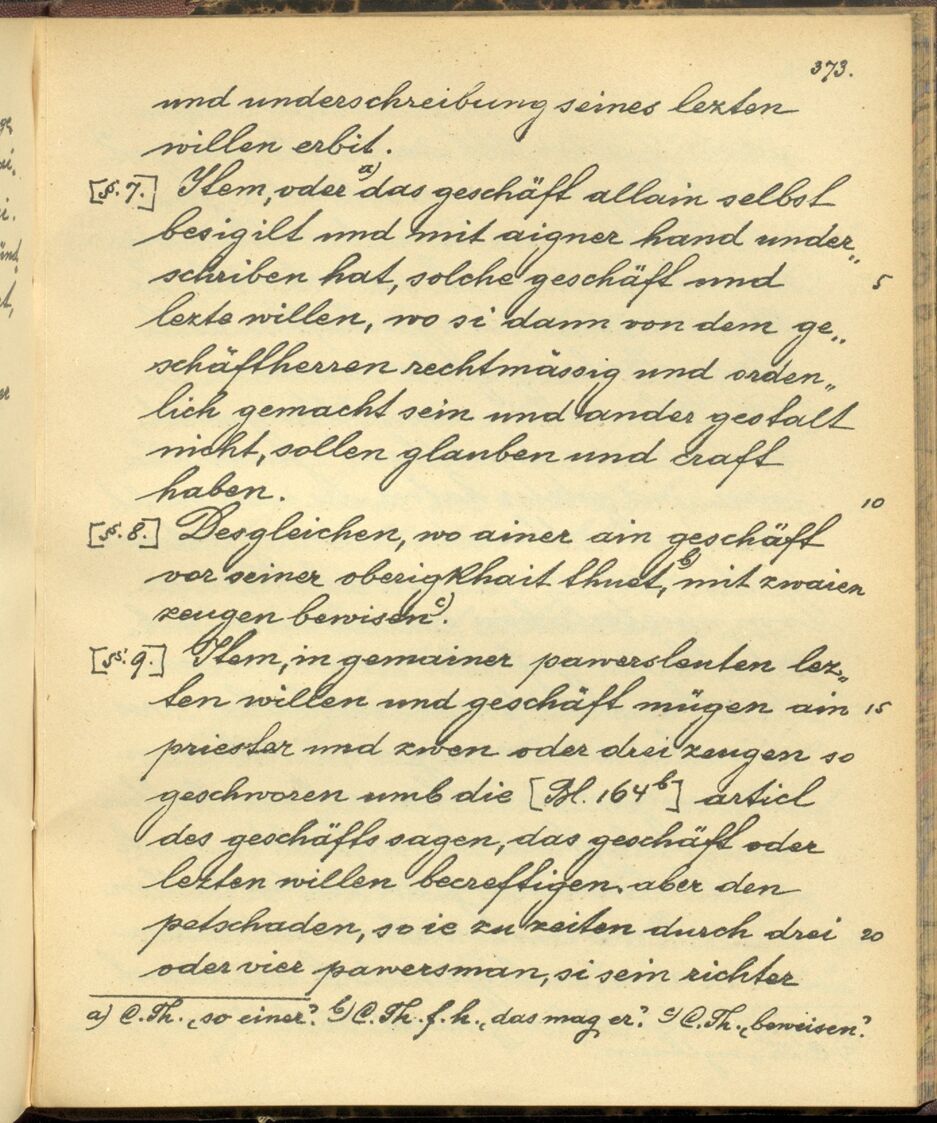 373.
und underschreibung seines lezten
willen erbit.
[§. 7.] Item, oder a) das geschäft allain selbst
besigilt und mit aigner hand under„
schriben hat, solche geschäft und 5
lezte willen, wo si dann von dem ge„
schäftherren rechtmässig und orden„
lich gemacht sein und ander gestalt
nicht, sollen glauben und craft
haben. 10
[§. 8.] Desgleichen, wo ainer ain geschäft
vor seiner oberigkhait thuet, b) mit zwaien
zeugen bewisen c).
[§. 9.] Item, in gemainer pawersleuten lez„
ten willen und geschäft mügen ain 15
priester und zwen oder drei zeugen so
geschworen umb die [Bl. 164b] articl
des geschäfts sagen, das geschäft oder
lezten willen becreftigen. aber den
petschaden, so ie zu zeiten durch drei 20
oder vier pawersman, si sein richter
a) C. Th. „so einer“. b) C. Th. f. h. „das mag er“. c) C. Th. „beweisen“.